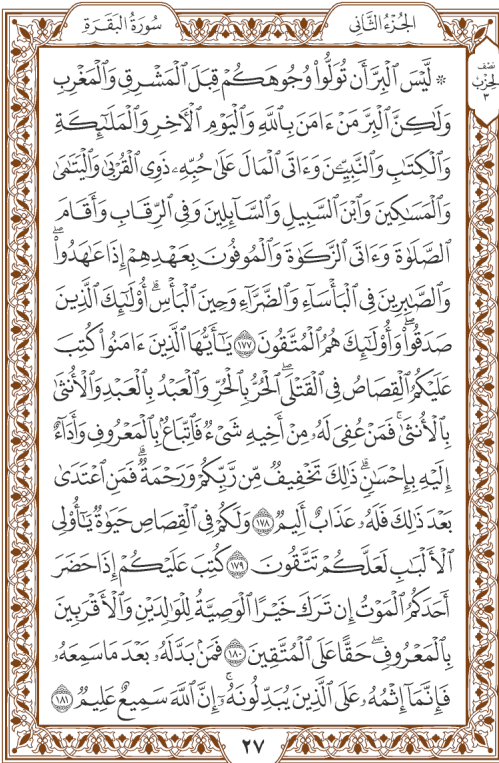 الجُزْءُ الثَّانِي
سُورَةُ البَقَرَةِ
نصف
الحزب
٣
۞ لَّيْسَ ٱلْبِرَّ أَن تُوَلُّوا۟ وُجُوهَكُمْ قِبَلَ ٱلْمَشْرِقِ وَٱلْمَغْرِبِ
وَلَٰكِنَّ ٱلْبِرَّ مَنْ ءَامَنَ بِٱللَّهِ وَٱلْيَوْمِ ٱلْءَاخِرِ وَٱلْمَلَٰٓئِكَةِ
وَٱلْكِتَٰبِ وَٱلنَّبِيِّـۧنَ وَءَاتَى ٱلْمَالَ عَلَىٰ حُبِّهِۦ ذَوِى ٱلْقُرْبَىٰ وَٱلْيَتَٰمَىٰ
وَٱلْمَسَٰكِينَ وَٱبْنَ ٱلسَّبِيلِ وَٱلسَّآئِلِينَ وَفِى ٱلرِّقَابِ وَأَقَامَ
ٱلصَّلَوٰةَ وَءَاتَى ٱلزَّكَوٰةَ وَٱلْمُوفُونَ بِعَهْدِهِمْ إِذَا عَٰهَدُوا۟ۖ
وَٱلصَّٰبِرِينَ فِى ٱلْبَأْسَآءِ وَٱلضَّرَّآءِ وَحِينَ ٱلْبَأْسِۗ أُو۟لَٰٓئِكَ ٱلَّذِينَ
صَدَقُوا۟ۖ وَأُو۟لَٰٓئِكَ هُمُ ٱلْمُتَّقُونَ ١٧٧ يَٰٓأَيُّهَا ٱلَّذِينَ ءَامَنُوا۟ كُتِبَ
عَلَيْكُمُ ٱلْقِصَاصُ فِى ٱلْقَتْلَىۖ ٱلْحُرُّ بِٱلْحُرِّ وَٱلْعَبْدُ بِٱلْعَبْدِ وَٱلْأُنثَىٰ
بِٱلْأُنثَىٰۚ فَمَنْ عُفِىَ لَهُۥ مِنْ أَخِيهِ شَىْءٌ فَٱتِّبَاعٌۢ بِٱلْمَعْرُوفِ وَأَدَآءٌ
إِلَيْهِ بِإِحْسَٰنٍۗ ذَٰلِكَ تَخْفِيفٌ مِّن رَّبِّكُمْ وَرَحْمَةٌۗ فَمَنِ ٱعْتَدَىٰ
بَعْدَ ذَٰلِكَ فَلَهُۥ عَذَابٌ أَلِيمٌ ١٧٨ وَلَكُمْ فِى ٱلْقِصَاصِ حَيَوٰةٌ يَٰٓأُو۟لِى
ٱلْأَلْبَٰبِ لَعَلَّكُمْ تَتَّقُونَ ١٧٩ كُتِبَ عَلَيْكُمْ إِذَا حَضَرَ
أَحَدَكُمُ ٱلْمَوْتُ إِن تَرَكَ خَيْرًا ٱلْوَصِيَّةُ لِلْوَٰلِدَيْنِ وَٱلْأَقْرَبِينَ
بِٱلْمَعْرُوفِۖ حَقًّا عَلَى ٱلْمُتَّقِينَ ١٨٠ فَمَنۢ بَدَّلَهُۥ بَعْدَ مَا سَمِعَهُۥ
فَإِنَّمَآ إِثْمُهُۥ عَلَى ٱلَّذِينَ يُبَدِّلُونَهُۥٓۚ إِنَّ ٱللَّهَ سَمِيعٌ عَلِيمٌ ١٨١
٢٧